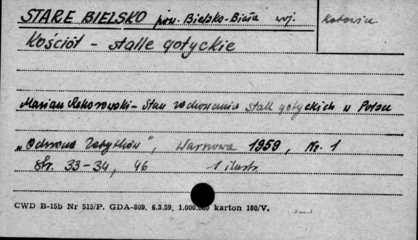 STARE BIELSKO pow. Bielsko-Biała woj. Katowice
Kościół - stalle gotyckie
Marian Kornecki - Stan zachowania stall gotyckich w Polsce
„Ochrona Zabytków", Warszawa 1959, Nr. 1
Str. 33-34, 46 1 ilustr.
CWD B-15b Nr 515/P. GDA-809. 6.3.59. 1.000.000 karton 180/V.